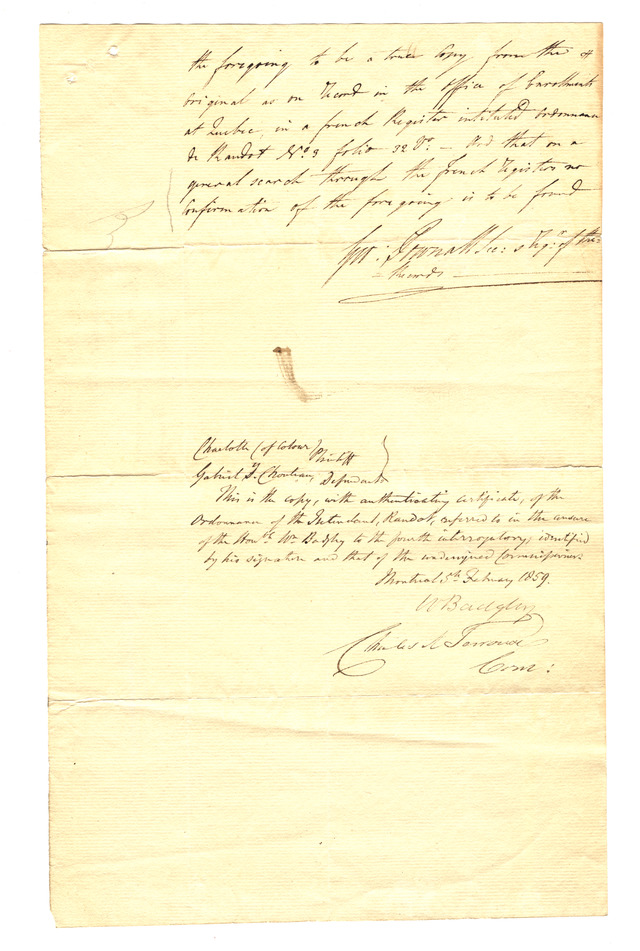 the foregoing to be a true Copy from the
Original as on Record in the Office of Enrollments
at Quebec, in a french Register intituled Ordonnances
de Raudot No. 3 folio 32 Vo. — And that on a
general search through the french Registers no
Confirmation of the foregoing is to be found
Geo: Pownall Sec: & Regr. of the
Records
Charlotte (of Colour) Plaintiff
Gabriel S. Chouteau, Defendant
This is the copy, with authenticating certificate, of the
Ordonnance of the Intendant, Raudot, referred to in the answer
of the Honble. Wm Badgley to the fourth interrogatory, identified
by his signature and that of the undersigned Commissioner.
Montreal 5th February 1859.
W Badgley
Charles A Terroux
Com: